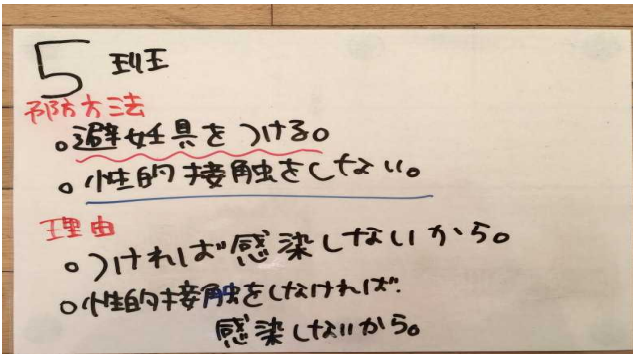 5 班
予防方法
。避妊具をつける。
。性的接触をしない。
理由
。つければ感染しないから。
。性的接触をしなければ
感染しないから。